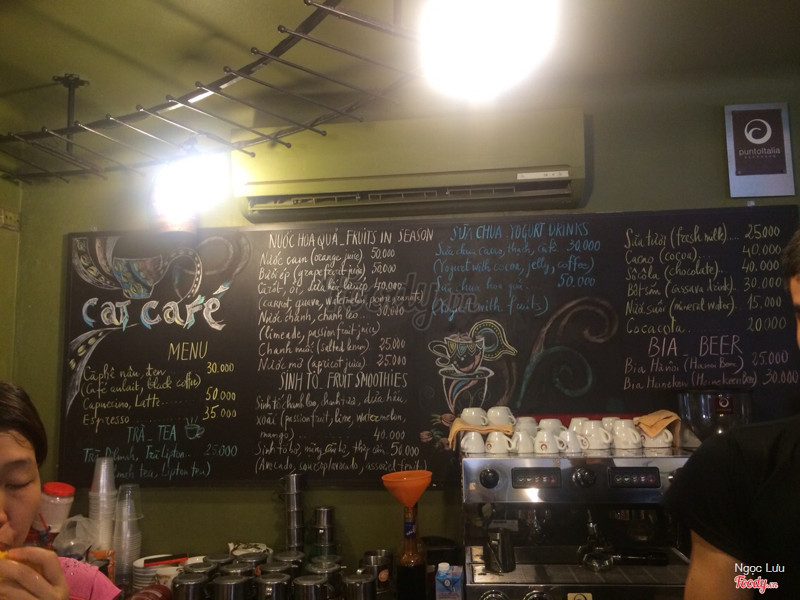 Cat café
MENU
Cà phê nâu, đen... 30.000
(Café au lait, black coffee)
Capuccino, Latte..... 50.000
Espresso 35.000
TRÀ - TEA
Trà Dilmah, Trà Lipton... 25.000
tea, Lipton tea)
NƯỚC HOA QUẢ - FRUITS IN SEASON
Nước cam (orange juice) 50.000
Bưởi ép (grapefruit juice) 50.000
Cà rốt, ổi, dưa hấu 40.000
(carrot, guava, watermelon
Nước chanh, chanh leo... 30.000
(limeade, passion fruit juice)
Chanh muối (salted lemon) 25.000
Nước mơ (apricot juice) 25.000
SINH TỐ - FRUIT SMOOTHIES
Sinh tố chanh leo, chanh, dưa hấu,
xoài (passion fruit, lime, watermelon,
mango) 40.000
Sinh tố bơ, mãng cầu 50.000
(Avocado,
SỮA CHUA - YOGURT DRINKS
Sữa chua cacao, thạch, café 30.000
(Yogurt with cocoa, jelly, coffee)
Sữa chua hoa quả... 50.000
(Yogurt with fruits)
Sữa tươi (fresh milk)... 25.000
Cacao (cocoa)... 40.000
Sôcôla (chocolate)... 40.000
Bột sắn (cassava drink). 30.000
Nước suối (mineral water). 15.000
Cocacola.. 20.000
BIA - BEER
Bia Hà Nội (Hanoi Beer) 25.000
Bia Heineken (Heineken Beer) 30.000
puntoitalia
ESPRESSO
Ngọc Lưu
Foody.vn